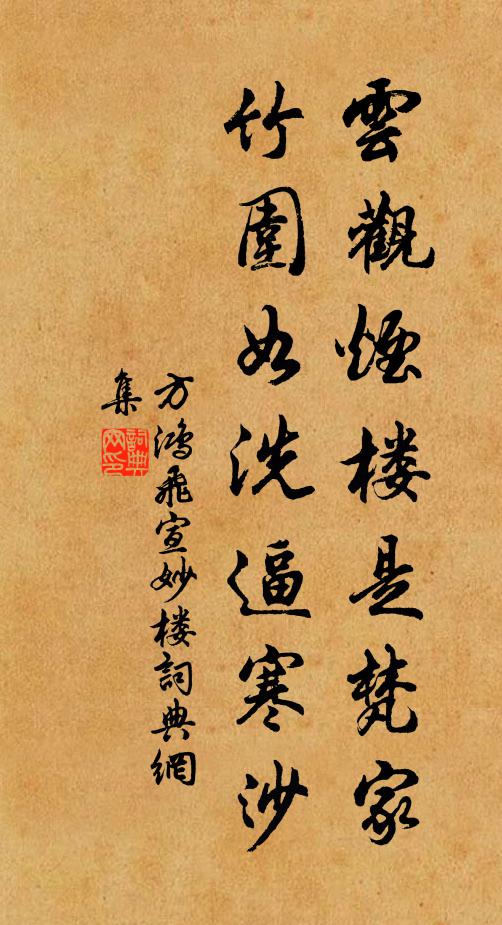 雲觀煙楼是梵家
竹圍如洗逼寒沙
方鴻飛宣妙楼詞典網
集
詞典网印